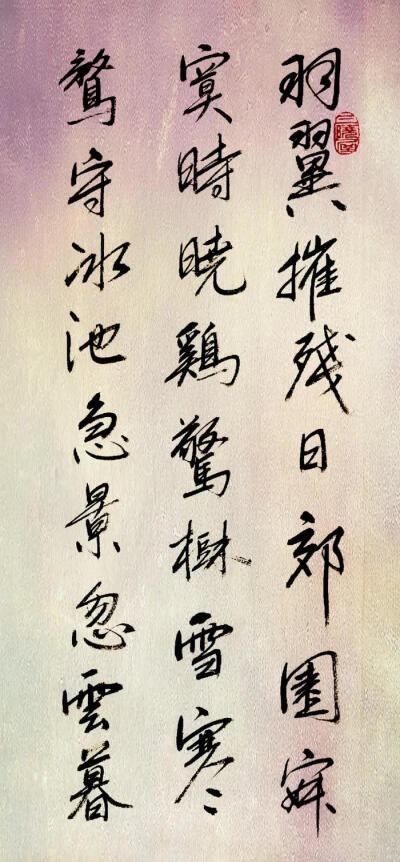 羽翼摧残日郊園寂
寞時曉鷄驚樹雪寒
鶩守冰池急景忽雲暮